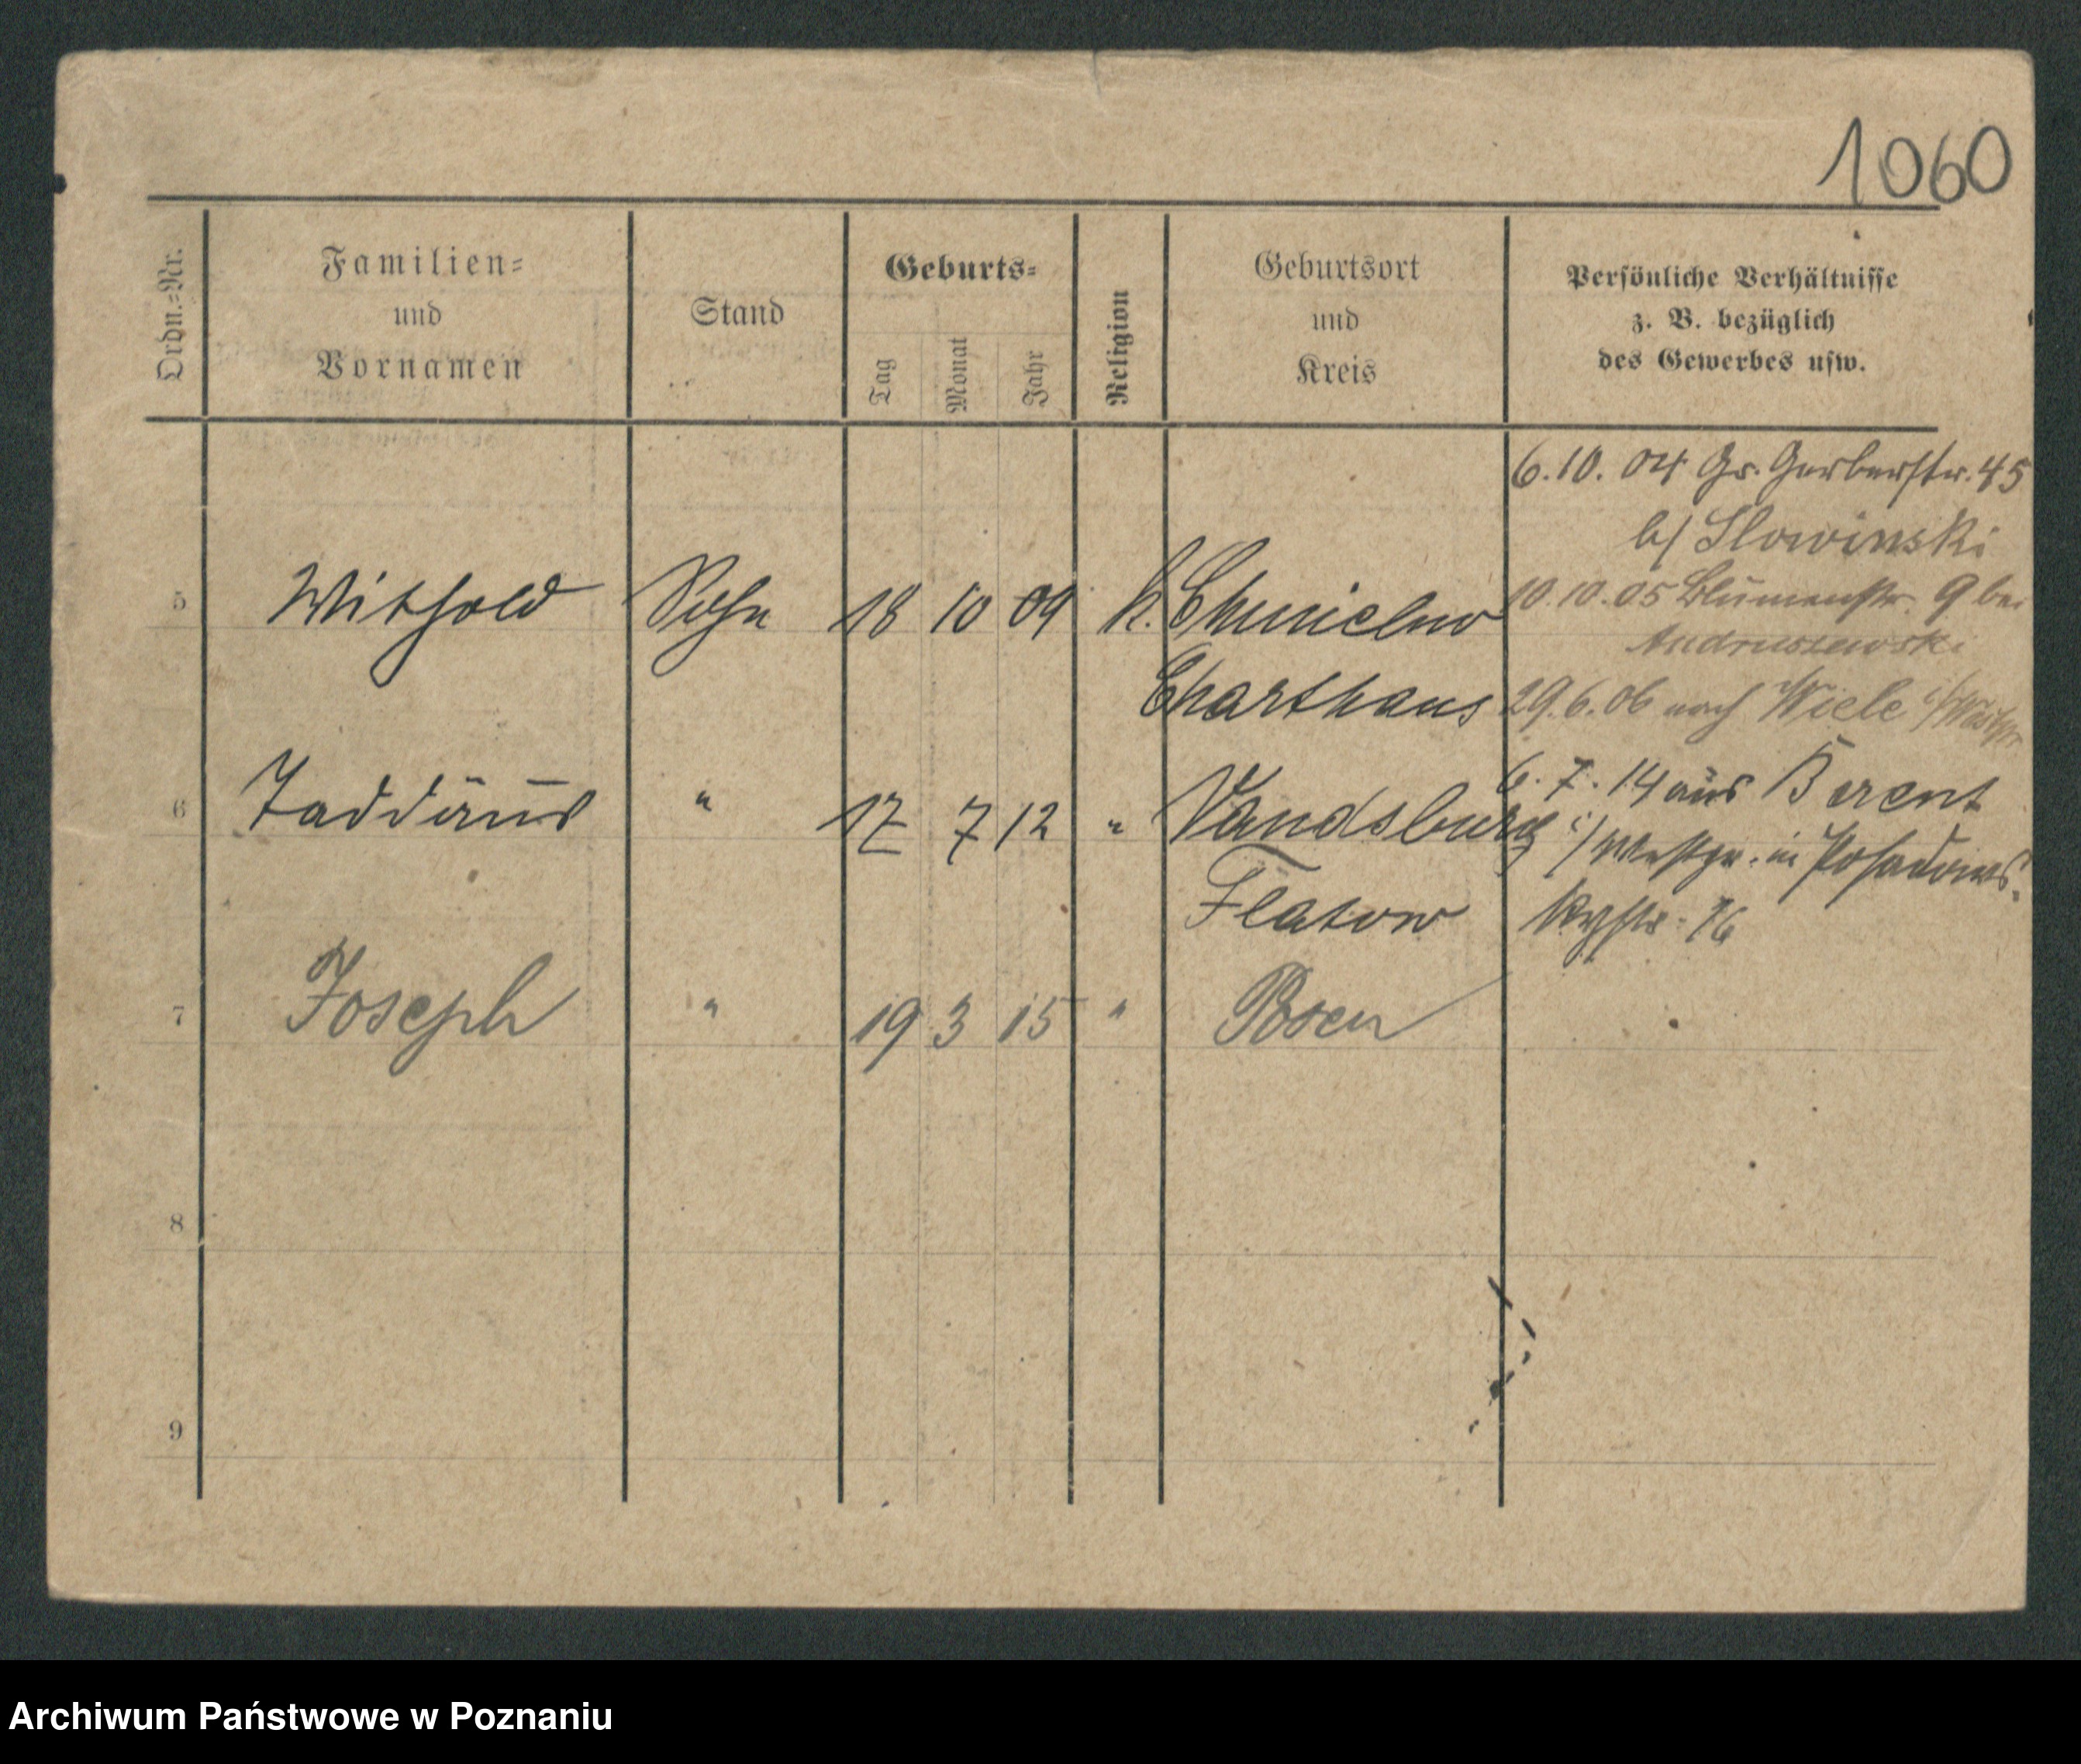 1060
Ordn.-Nr.
Familien-
und
Vornamen
Stand
Geburts-
Tag
Monat
Jahr
Religion
Geburtsort
und
Kreis
Persönliche Verhältnisse
z. B. bezüglich
des Gewerbes usw.
6.10.04 Gr. Gerberstr. 45
b/ Slowinski
5 Withold Sohn 18 10 09 k. Chmielno
10.10.05 Blumenstr. 9 bei
Andruszewski
Charthaus
29.6.06 nach Wiele i/Westpr
6 Taddäus " 17 7 12 " Vandsburg
6.7.14 aus Berent
i/Westpr. in Posadows-
Flatow
kystr. 76
7 Joseph " 19 3 15 " Posen
8
9
Archiwum Państwowe w Poznaniu